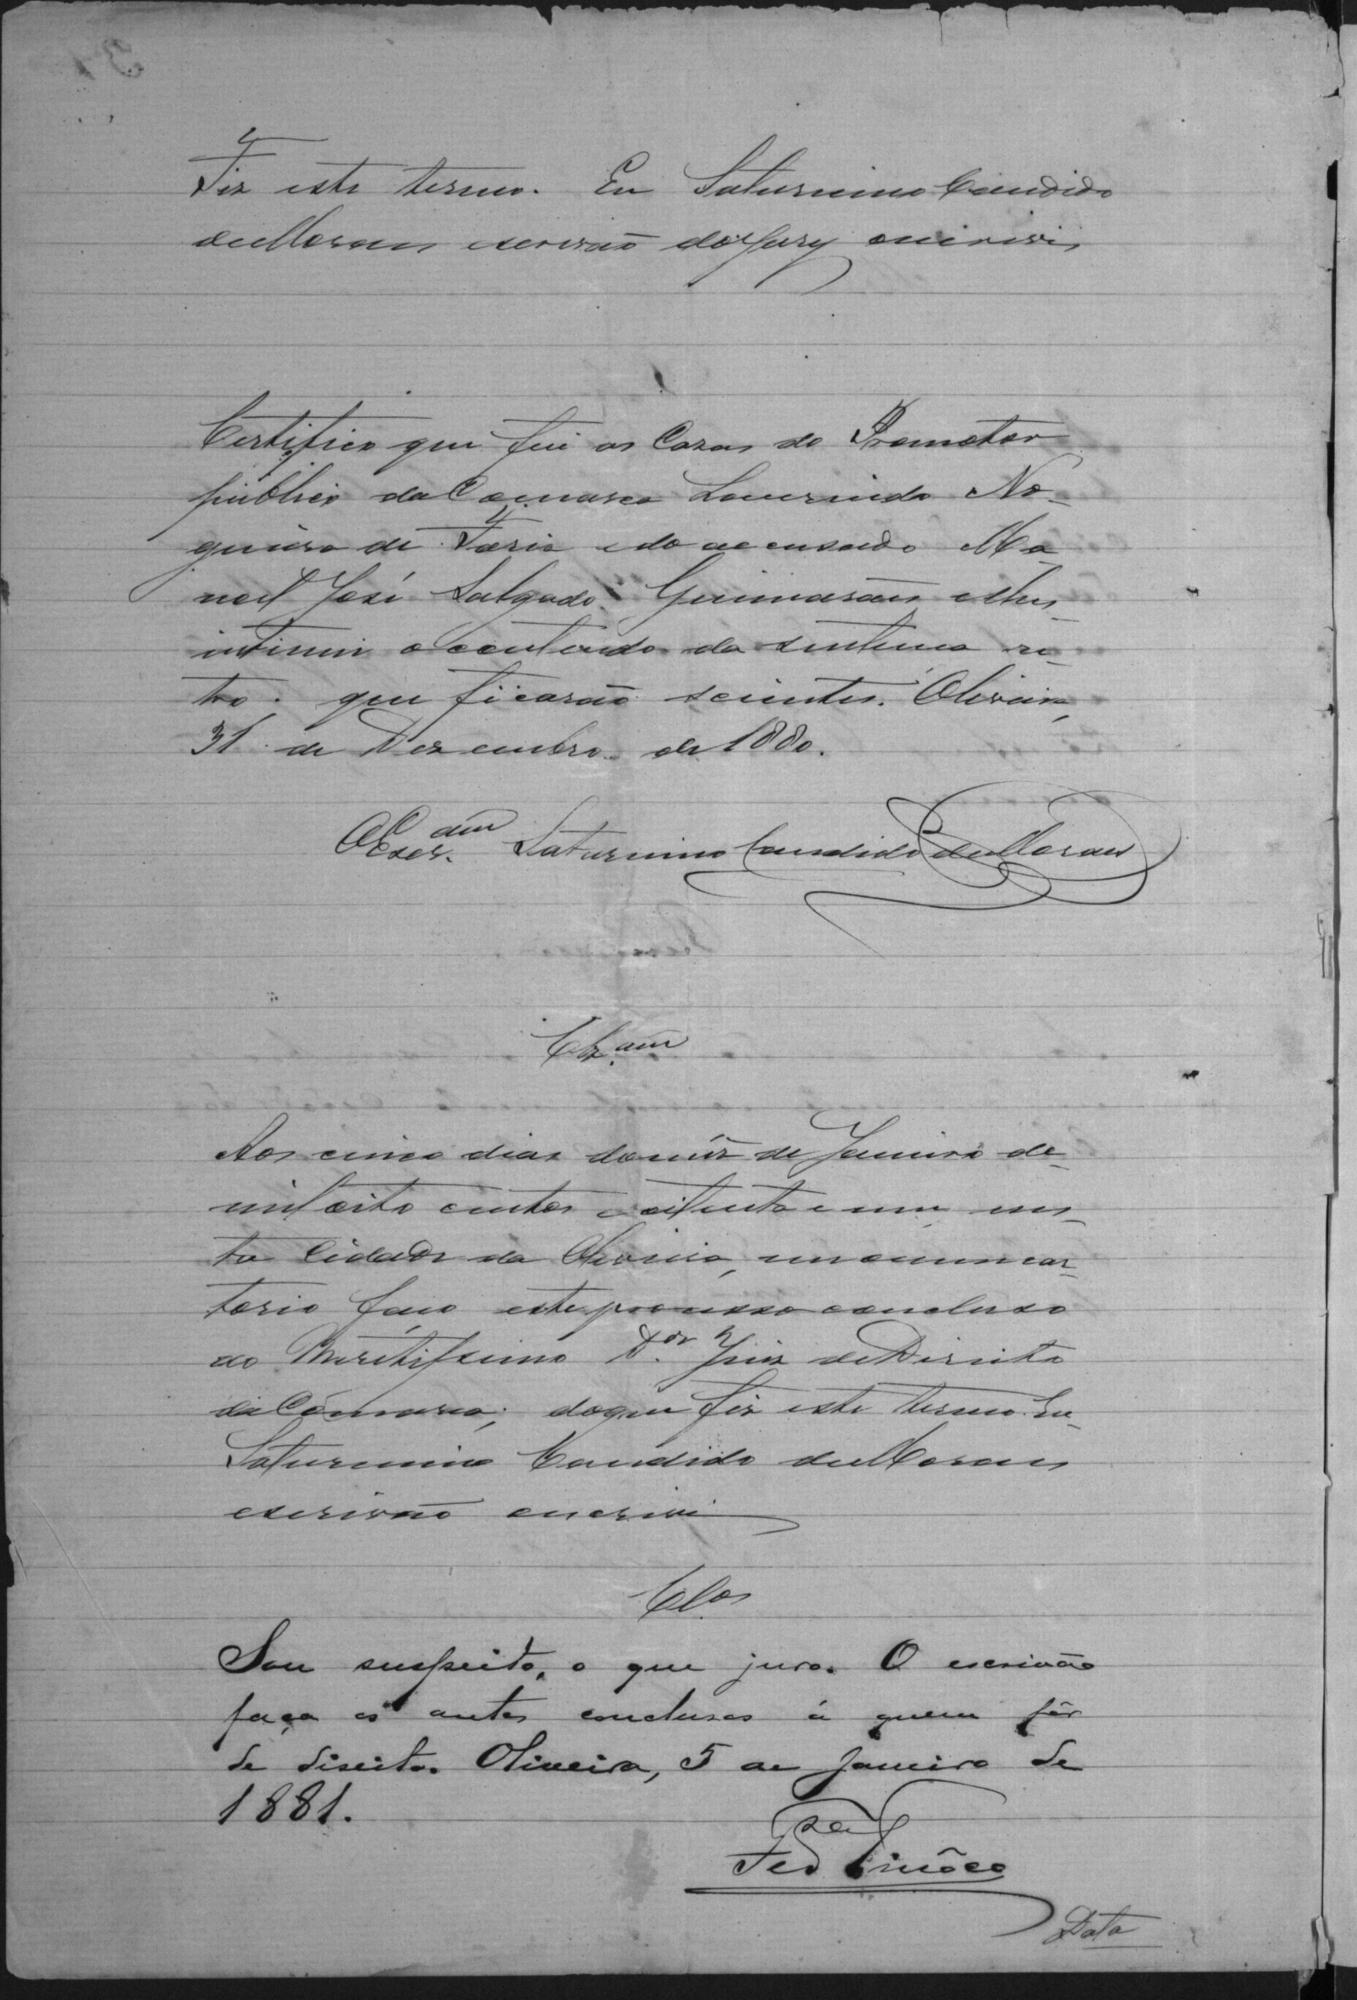 Fiz este termo. Eu Saturnino Candido
de Moraes escrivão do Jury o escrivi
Certifico que fui as Casas do Promotor
publico da Comarca Lourindo No-
gueira de Faria e do accusado Ma-
noel José Salgado Guimarães e lhes
intimei o conteudo da sentença re-
tro. que ficarão scientes. Oliveira,
31 de Dezembro de 1880.
O Escr.am Saturnino Candido de Moraes
Clz.am
Aos cinco dias do mez de Janeiro de
mil oito centos e oitenta e um nes-
ta Cidade da Oliveira, em meu car-
torio faço este processo concluso
ao Meritissimo Dor Juiz de Direito
da Comarca; do que fiz este termo. Eu
Saturnino Candido de Moraes
escrivão o escrivi
Clos
Sou suspeito, o que juro. O escrivão
faça os autos conclusos á quem fôr
de direito. Oliveira, 5 de Janeiro de
1881.
Tinôco
Data